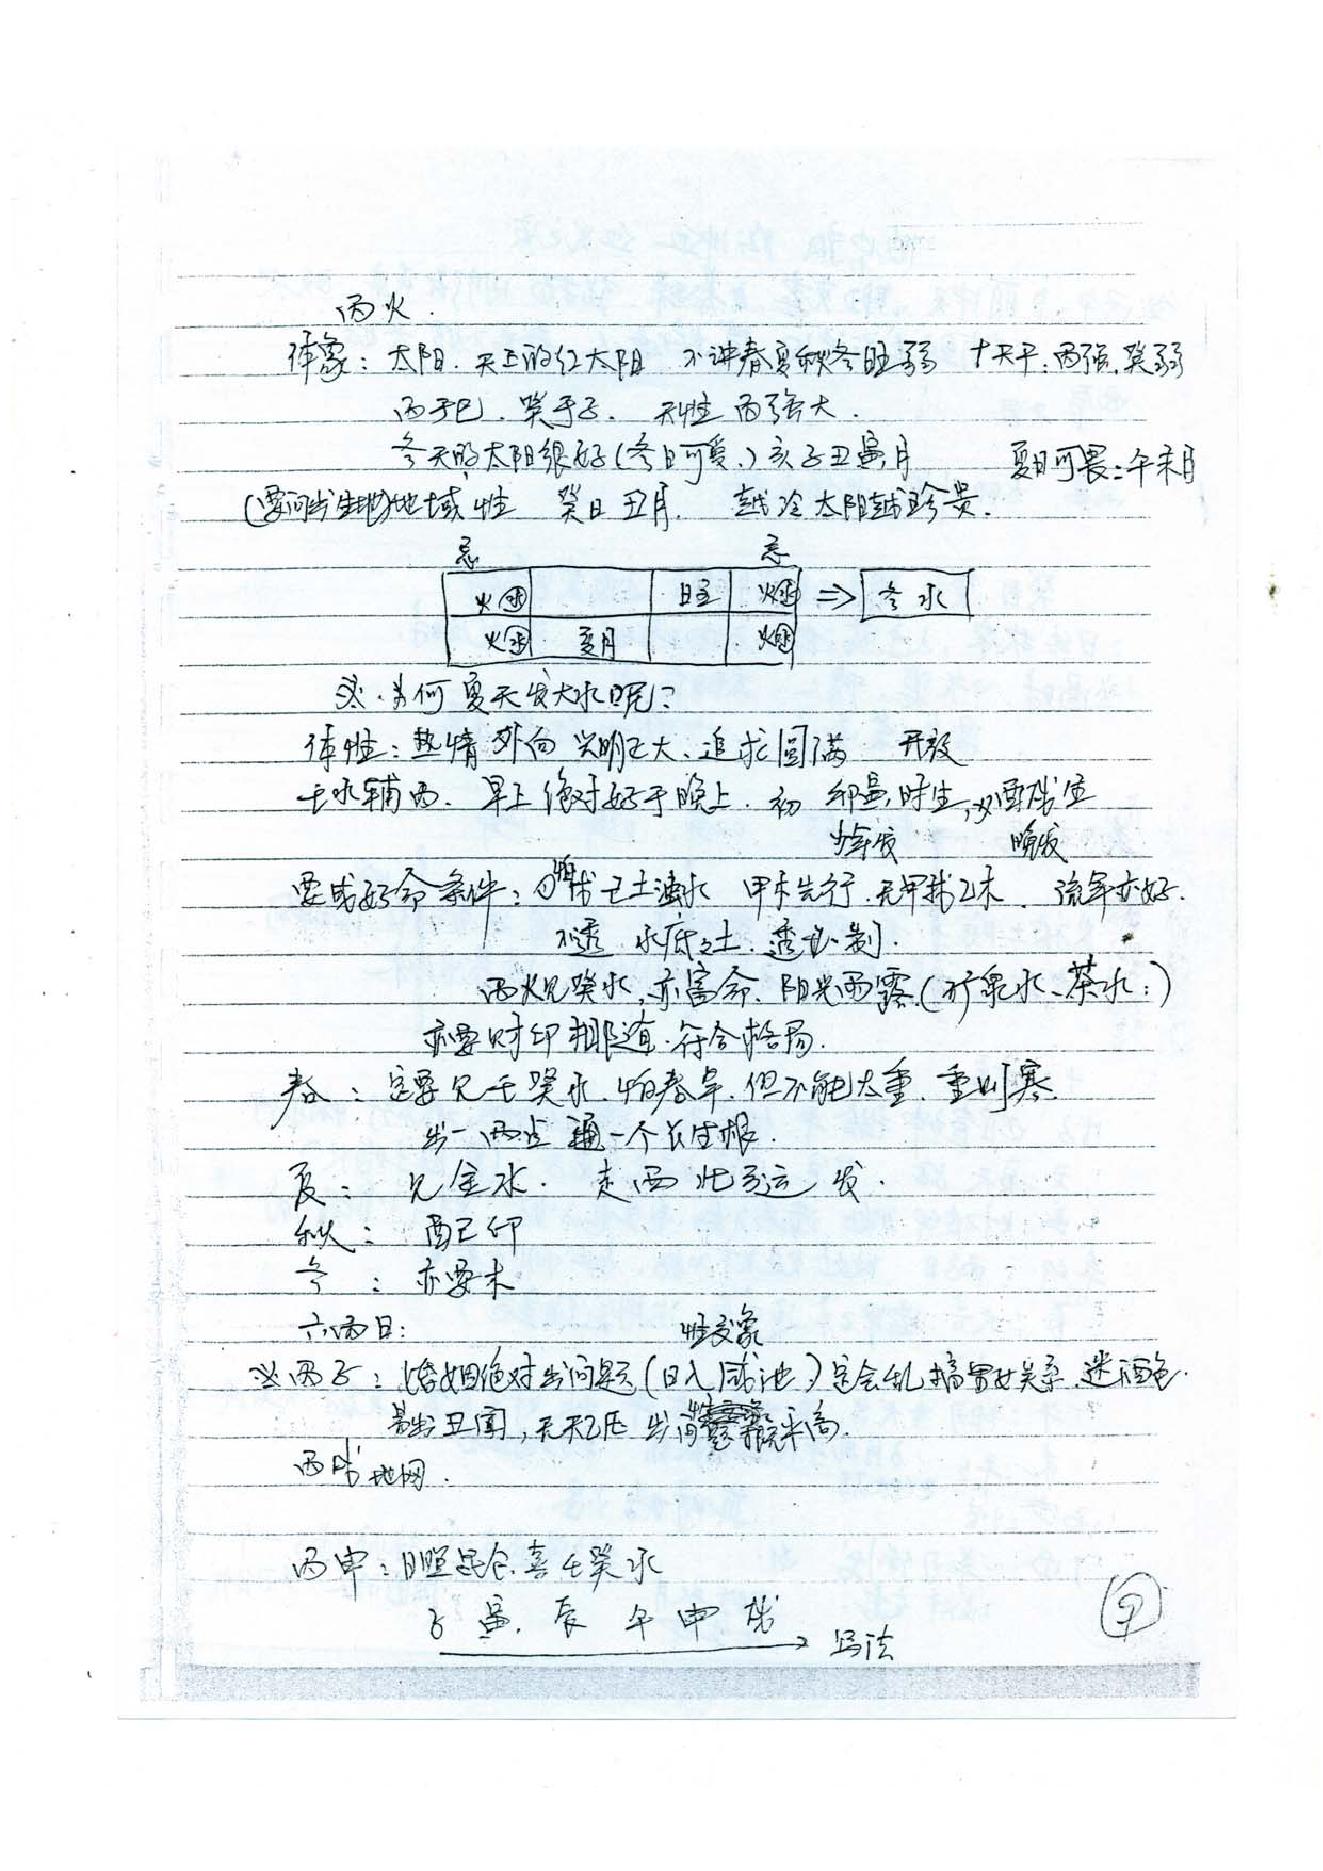 丙火.
体象: 太阳. 天上的红太阳 不讲春夏秋冬旺弱 十天干: 丙强, 癸弱
丙于巳. 癸于子. 天性 丙强大.
冬天的太阳很好(冬日可爱.) 亥子丑寅月 夏日可畏: 午未月
(要问出生地)地域性 癸日 丑月. 越冷太阳越珍贵.
忌 忌
火团 日主 火团 ⇒ 冬 水
火团 夏月 火团
为何夏天发大水呢?
体性: 热情 外向 光明正大、追求圆满 开放
壬水辅丙. 早上绝对好于晚上. 初 卯寅, 时生, 酉戌生
少年发 晚发
要成好命条件: 怕戊己土浊水 甲木先行. 无甲找乙木. 流年亦好.
不透 水底之土. 透必制.
丙火见癸水, 亦富命. 阳光雨露. (矿泉水、茶水:)
亦要财印相随. 符合格局.
春: 定要见壬癸水. 怕春旱. 但不能太重. 重则寒.
出一两点 通一个长生根.
夏: 见金水. 走西北运 发.
秋: 配己印
冬: 亦要木
六丙日: 性交象
丙子: 婚姻绝对出问题 (日入咸池) 定会乱搞男女关系. 迷酒色.
易出丑闻, 无天乙 出 概率高.
丙戌 地网.
丙申: 日照昆仑. 喜壬癸水
子 寅. 辰 午 申 戌
→ 写法